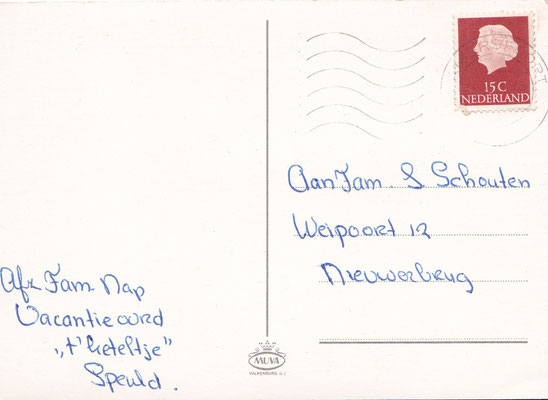 15 C
NEDERLAND
Aan Fam. S Schouten
Weipoort 12
Nieuwerbrug
Afz Fam. Nap
Vacantieoord
„t' keteltje"
Speuld.
MUVA
VALKENBURG (L.)